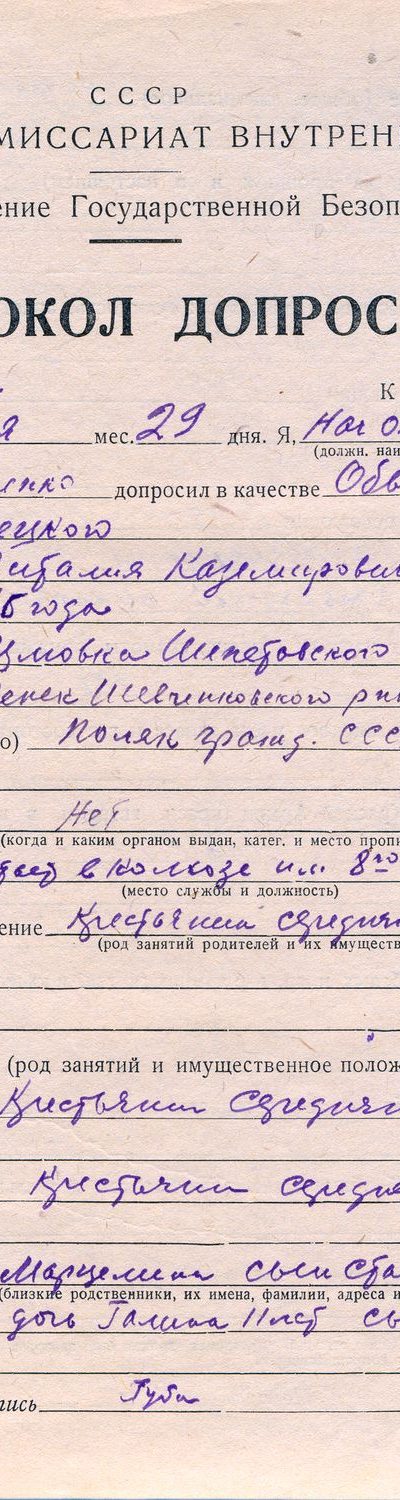 СССР
МИССАРИАТ ВНУТРЕН
ение Государственной Безоп
ОКОЛ ДОПРОС
К
я мес. 29 дня. Я, Нач о
(должн. наи
енко допросил в качестве Обв
ецкого
италия Каземирович
5 года
Шепетовского
Шевченковского
о) Поляк гражд. ССС
Нет
(когда и каким органом выдан, катег. и место пропи
в колхозе им 8го
(место службы и должность)
ение Крестьянин средняк
(род занятий родителей и их имуществ
(род занятий и имущественное полож
Крестьянин средняк
Крестьянин средня
Марцелина сын Ста
(близкие родственники, их имена, фамилии, адреса и
дочь Галина 11 лет сы
пись Губа